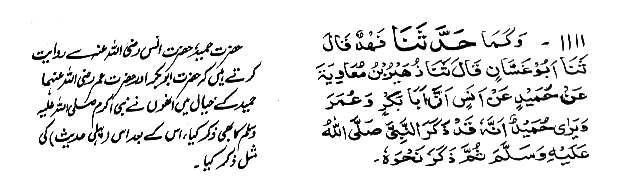 ۱۱۱۱ - وَكَمَا حَدَّثَنَا فَهْدٌ قَالَ
ثَنَا اَبُوْ غَسَّانٍ قَالَ ثَنَا زُهَيْرُ بْنُ مُعَاوِيَةَ
عَنْ حُمَيْدٍ عَنْ اَنَسٍ اَنَّ اَبَا بَكْرٍ وَعُمَرَ
وَيَرٰى حُمَيْدٌ اَنَّهٗ قَدْ ذَكَرَ النَّبِيَّ صَلَّى اللّٰهُ
عَلَيْهِ وَسَلَّمَ ثُمَّ ذَكَرَ نَحْوَهٗ۔
حضرت حمید، حضرت انس رضی اللہ عنہ سے روایت
کرتے ہیں کہ حضرت ابوبکر اور حضرت عمر رضی اللہ عنہما
حمید کے خیال میں انھوں نے نبی اکرم صلی اللہ علیہ
وسلم کا بھی ذکر کیا، اس کے بعد اس (پہلی حدیث) کی
مثل ذکر کیا۔